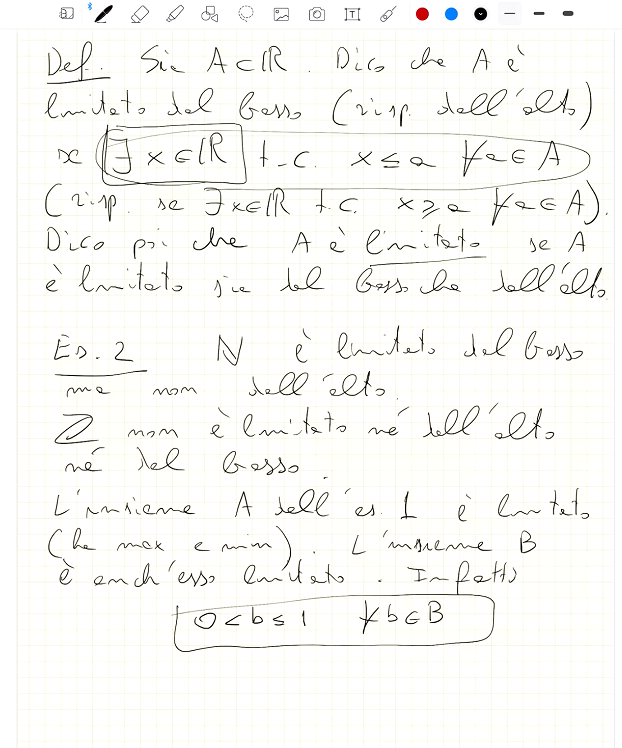 Def. Sia A⊂ℝ. Dico che A è
limitato dal basso (risp. dall'alto)
se ∃ x∈ℝ t.c. x≤a ∀a∈A
(risp. se ∃x∈ℝ t.c. x≥a ∀a∈A).
Dico poi che A è limitato se A
è limitato sia dal basso che dall'alto.
Es. 2 ℕ è limitato dal basso
ma non dall'alto.
ℤ non è limitato né dall'alto
né dal basso.
L'insieme A dell'es. 1 è limitato
(ha max e min). L'insieme B
è anch'esso limitato. Infatti
0<b≤1 ∀b∈B